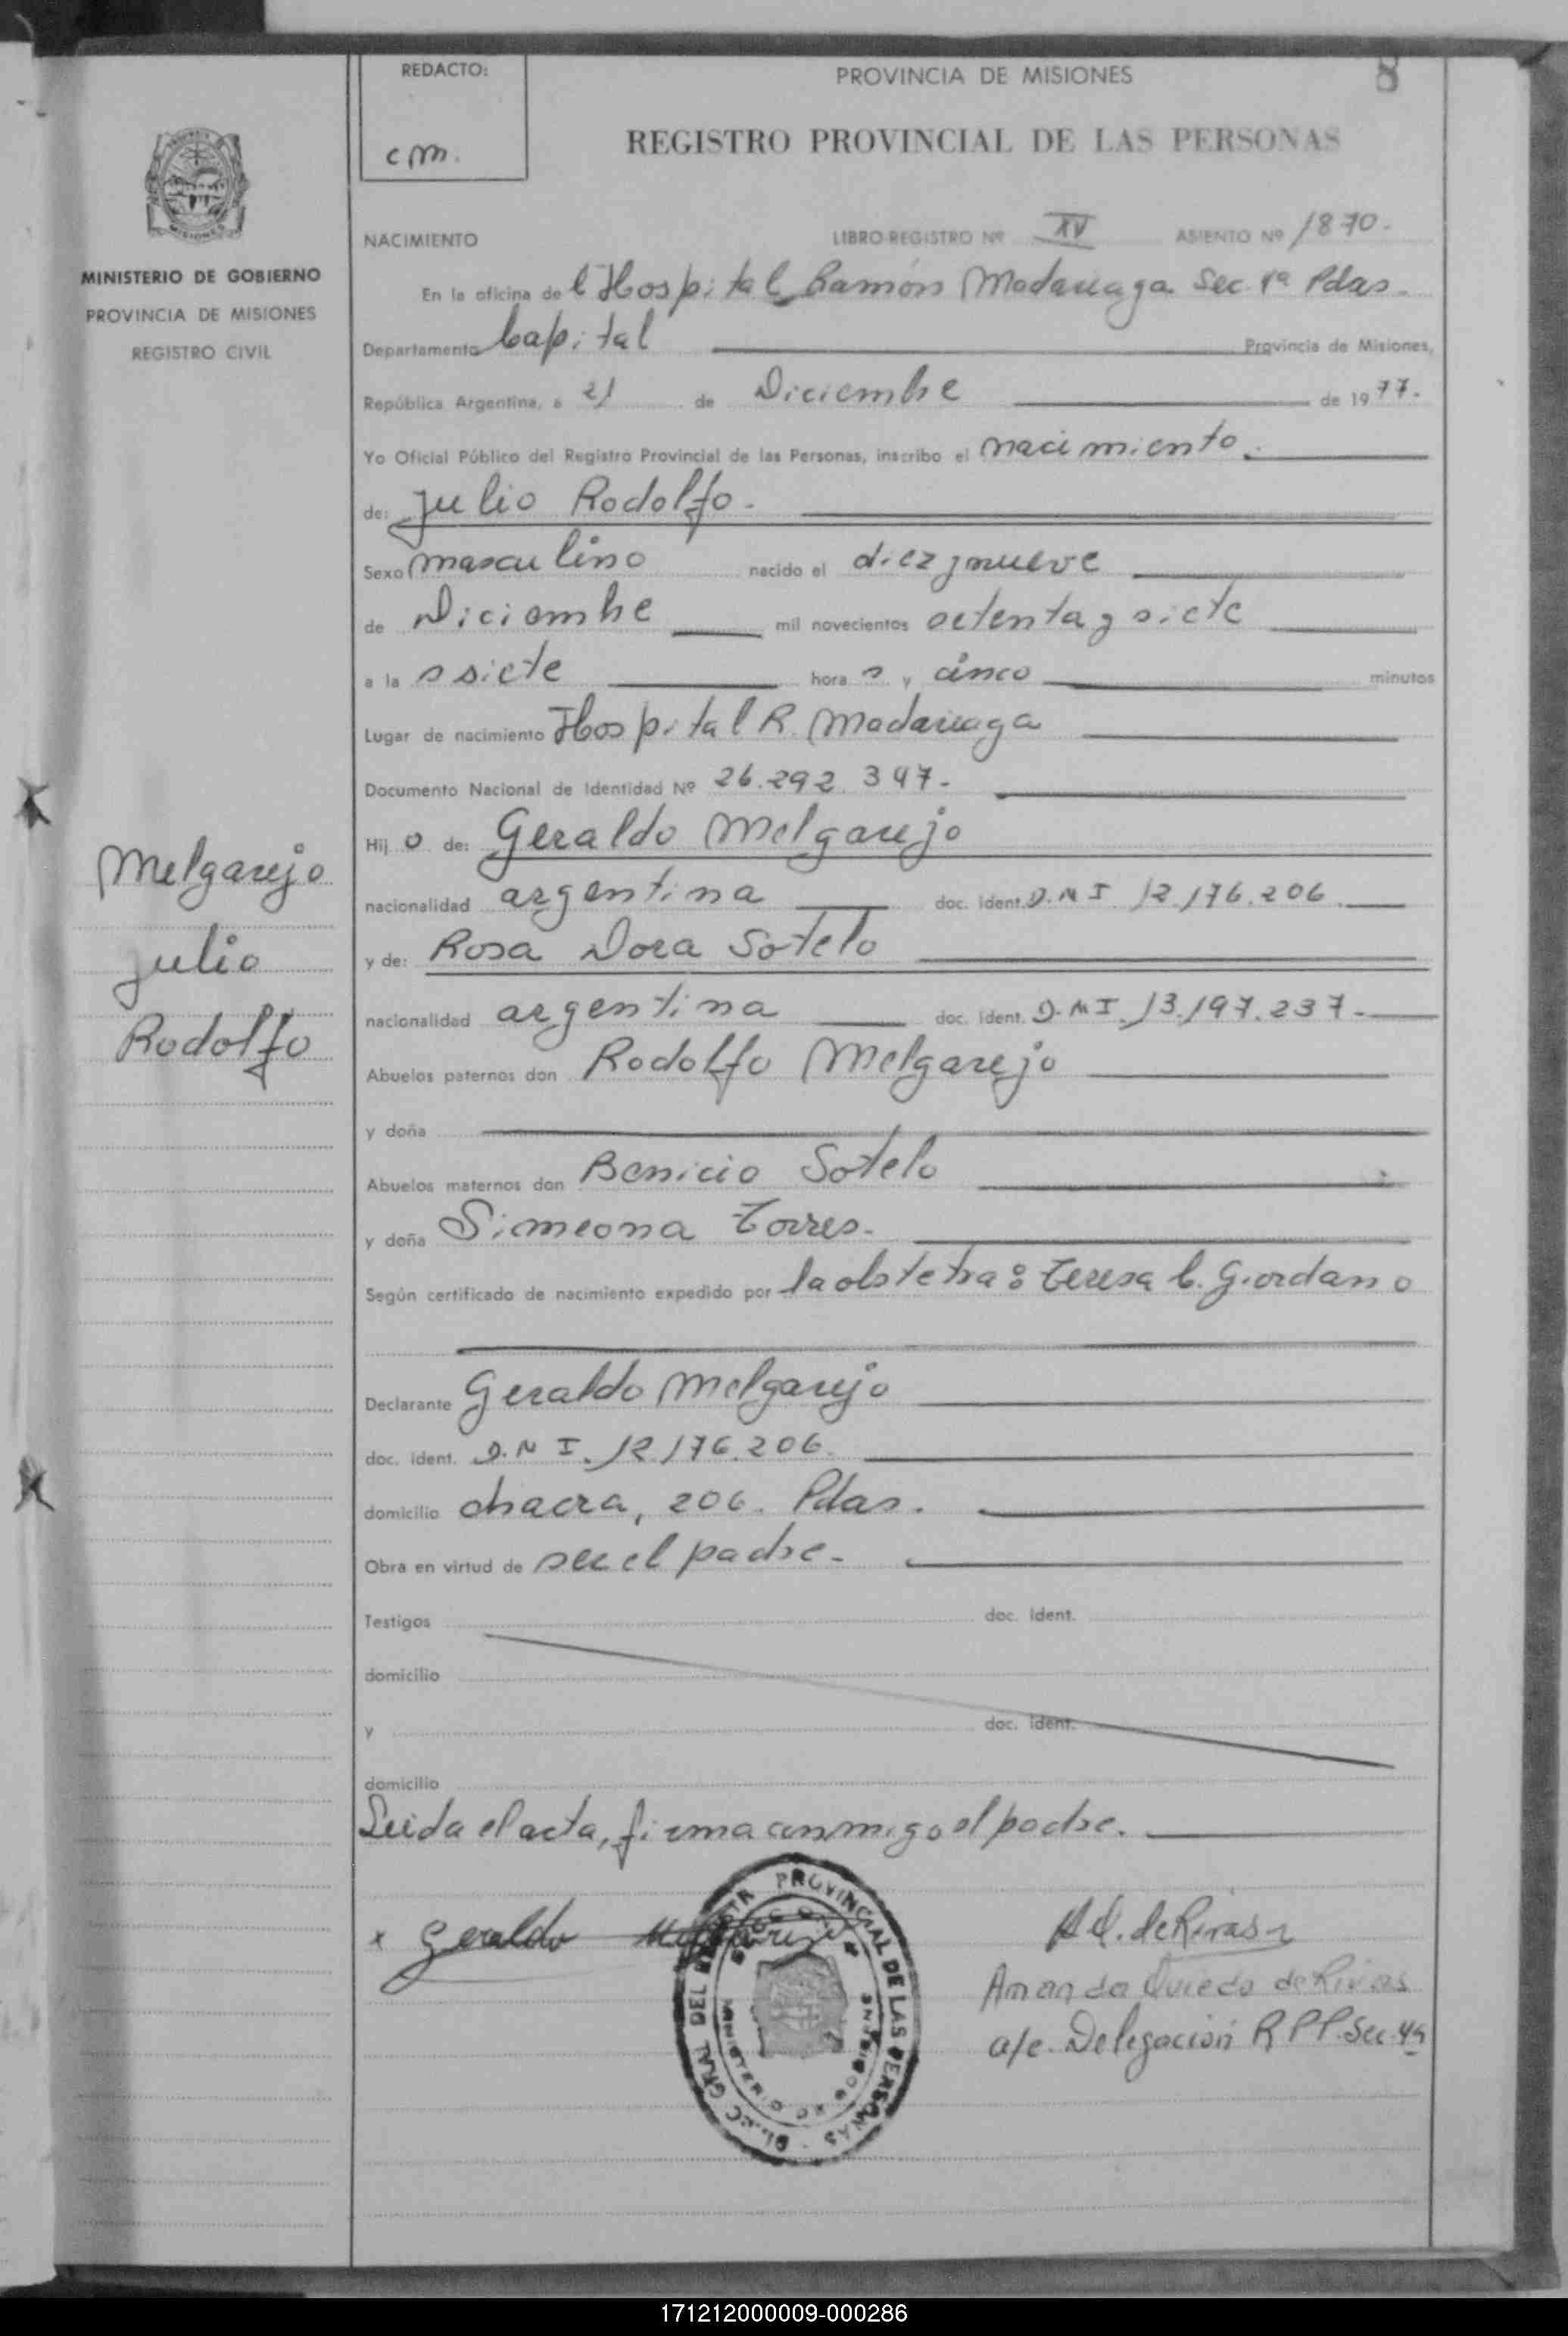 REDACTO:
cm.
PROVINCIA DE MISIONES
8
REGISTRO PROVINCIAL DE LAS PERSONAS
MINISTERIO DE GOBIERNO
PROVINCIA DE MISIONES
REGISTRO CIVIL
NACIMIENTO LIBRO-REGISTRO Nº XV ASIENTO Nº 1870.
En la oficina de l Hospital Ramón Madariaga Sec. Pdas.
Departamento Capital Provincia de Misiones,
República Argentina, a 21 de Diciembre de 1977.
Yo Oficial Público del Registro Provincial de las Personas, inscribo el nacimiento.
de: Julio Rodolfo.
Sexo masculino nacido el diez y nueve
de Diciembre mil novecientos setenta y siete
a la s siete hora s y cinco minutos
Lugar de nacimiento Hospital R. Madariaga
Documento Nacional de Identidad Nº 26.292.347.
Hij o de: Geraldo Melgarejo
nacionalidad argentina doc. ident. D.N.I. 12.176.206
y de: Rosa Dora Sotelo
nacionalidad argentina doc. ident. D.N.I. 13.197.237.
Abuelos paternos don Rodolfo Melgarejo
y doña
Abuelos maternos don Benicio Sotelo
y doña Simeona Torres.
Según certificado de nacimiento expedido por la obstetra: Teresa C. Giordano
Declarante Geraldo Melgarejo
doc. ident. D.N.I. 12.176.206.
domicilio chacra, 206. Pdas.
Obra en virtud de ser el padre.
Testigos doc. ident.
domicilio
y doc. ident.
domicilio
Leida el acta, firma conmigo el padre.
Melgarejo
Julio
Rodolfo
x Geraldo Melgarejo
A Q. de Rivas
Amanda Oviedo de Rivas
a/c. Delegación R P P. Sec. 4ª
DIREC GRAL DEL REGISTR PROVINCIAL DE LAS PERSONAS
MINISTERIO DE GOBIERNO
171212000009-000286